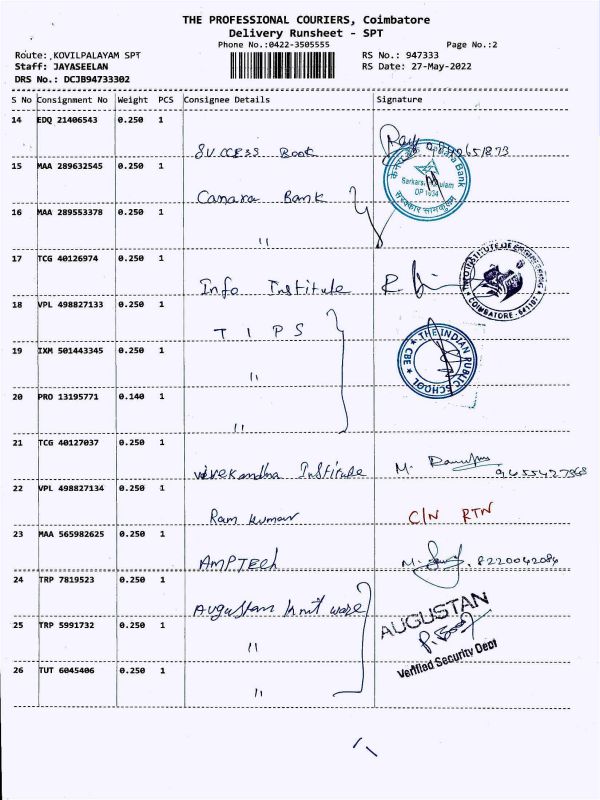 THE PROFESSIONAL COURIERS, Coimbatore
Delivery Runsheet - SPT
Phone No.:0422-3505555
Page No.:2
Route: KOVILPALAYAM SPT
RS No.: 947333
Staff: JAYASEELAN
RS Date: 27-May-2022
DRS No.: DCJB94733302
S No Consignment No Weight PCS Consignee Details Signature
14 EDQ 21406543 0.250 1
Success Book
15 MAA 289632545 0.250 1
Canara Bank
Canara Bank
DP 1034
16 MAA 289553378 0.250 1
"
17 TCG 40126974 0.250 1
Info Institute
COIMBATORE - 641107
18 VPL 498827133 0.250 1
TIPS
THE INDIAN PUBLIC SCHOOL
CBE
19 IXM 501443345 0.250 1
"
20 PRO 13195771 0.140 1
"
21 TCG 40127037 0.250 1
Vivekandha Institute M.
22 VPL 498827134 0.250 1
Ram Kumar C/N RTN
23 MAA 565982625 0.250 1
AMPTECH M. 8220042084
24 TRP 7819523 0.250 1
Augustan Knit ware
AUGUSTAN
25 TRP 5991732 0.250 1
"
Verified Security Dept
26 TUT 6045406 0.250 1
"